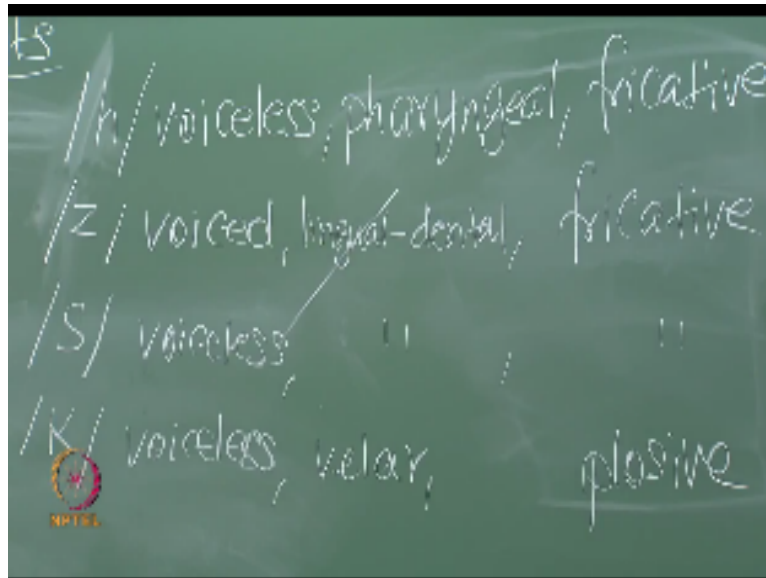 ts
/h/ voiceless, pharyngeal, fricative
/z/ voiced, lingual-dental, fricative
/S/ voiceless, " , "
/K/ voiceless, velar, plosive
NPTEL